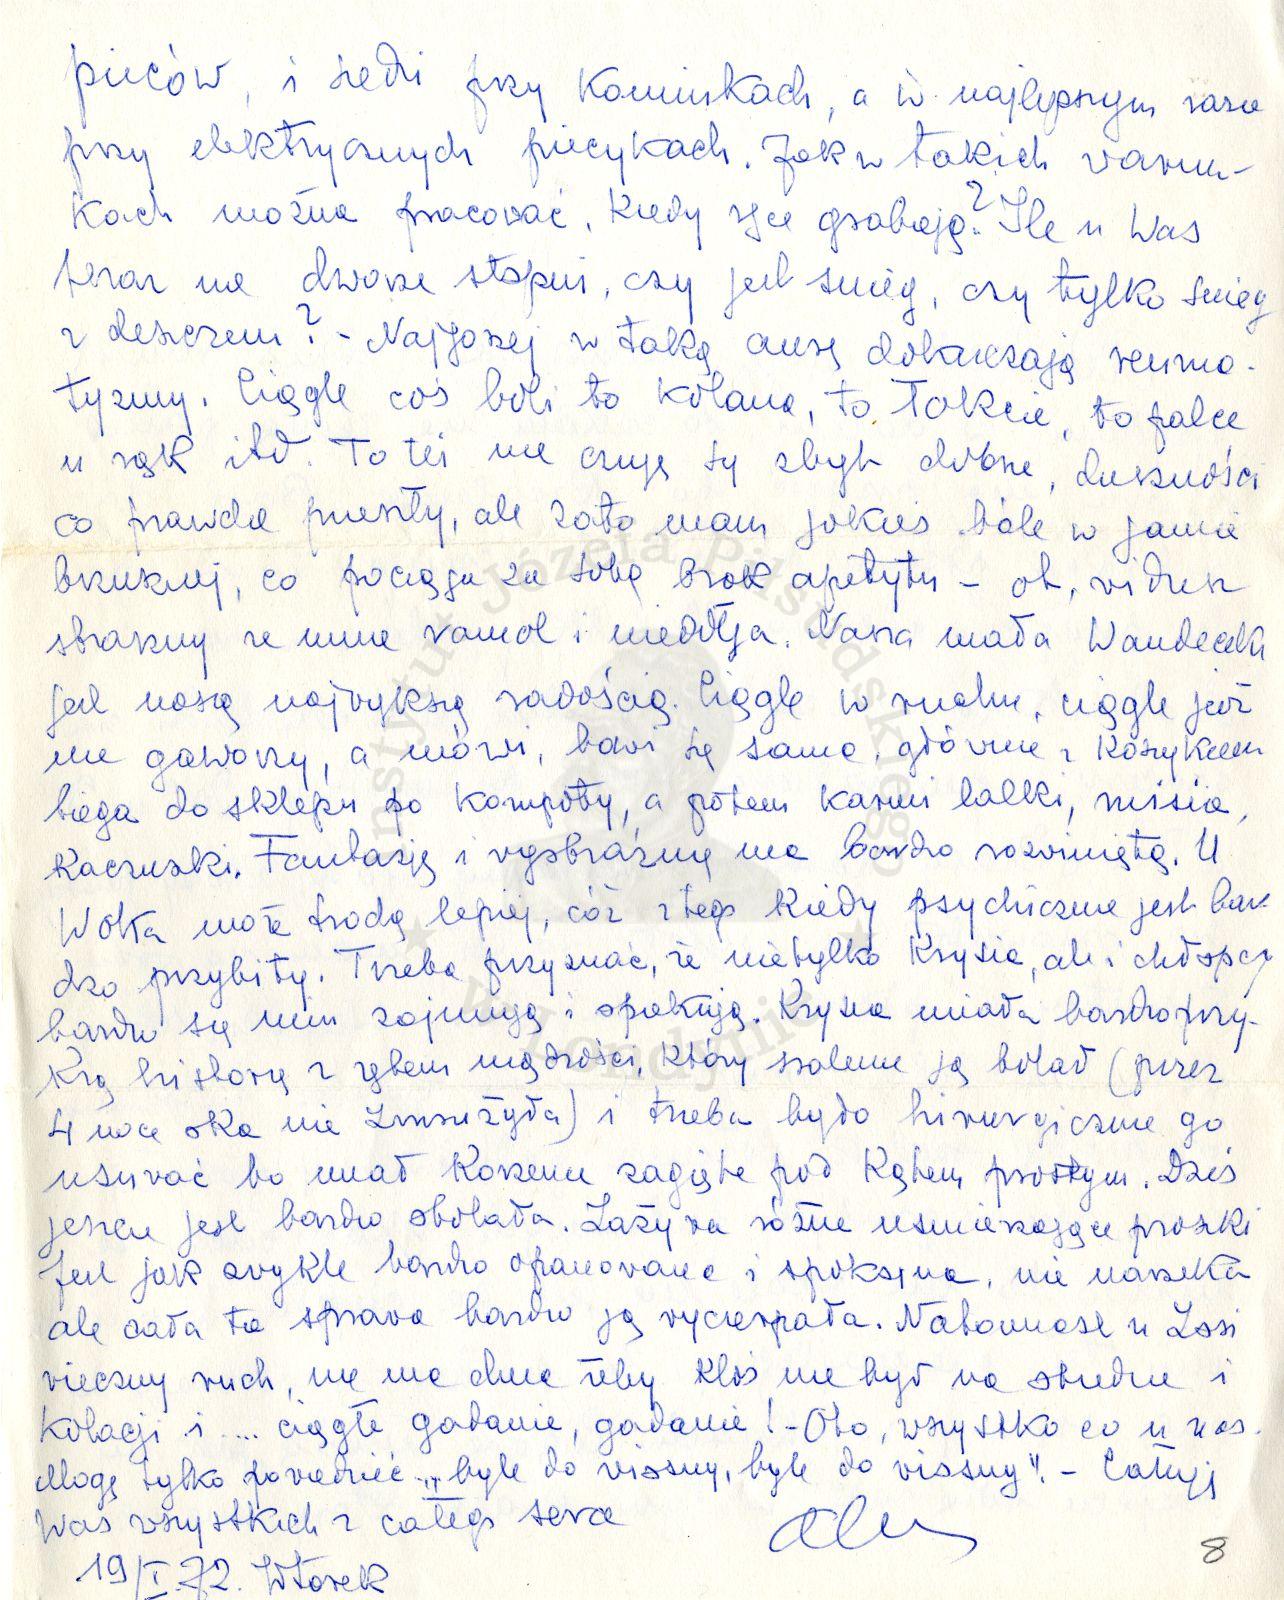 pieców, i siedzi przy Kominkach, a w najlepszym razie
przy elektrycznych piecykach. Jak w takich warun-
kach można pracować, kiedy ręce grabieją? Ile u Was
teraz na dworze stopni, czy jest śnieg, czy tylko śnieg
z deszczem? - Najgorzej w taką aurę dokuczają reuma-
tyzmy. Ciągle coś boli to kolana, to łokcie, to palce
u rąk itd. To też nie czuję się zbyt dobrze, duszności
co prawda przeszły, ale zato mam jakieś bóle w jamie
brzusznej, co pociąga za sobą brak apetytu - ot, widzisz
straszny ze mnie ramol i niedołęga. Nasza mała Wandeczka
jest naszą największą radością. Ciągle w ruchu, ciągle już
nie gaworzy, a mówi, bawi się sama, głównie z Koszykiem
biega do sklepu po Kompoty, a potem karmi lalki, misia,
Kaczuszki. Fantazję i wyobraźnię ma bardzo rozwiniętą. U
Wołka może trochę lepiej, cóż z tego kiedy psychicznie jest bar-
dzo przybity. Trzeba przyznać, że nietylko Krysia, ale i chłopcy
bardzo się nim zajmują i opiekują. Krysia miała bardzo przy-
krą historię z zębem mądrości, który szalenie ją bolał (przez
4 noce oka nie zmrużyła) i trzeba było hirurgicznie go
usuwać bo miał Korzenie zagięte pod Kątem prostym. Dziś
jeszcze jest bardzo obolała. Zażywa różne uśmierzające proszki
Jest jak zwykle bardzo opanowana i spokojna, nie narzeka
ale cała ta sprawa bardzo ją wyczerpała. Natomiast u Zosi
wieczny ruch, nie ma dnia żeby Ktoś nie był na obiedzie i
Kolacji i .... ciągłe gadanie, gadanie! - Oto, wszystko co u nas.
Mogę tylko powiedzieć "byle do wiosny, byle do wiosny". - Całuję
Was wszystkich z całego serca
19/I.72. Wtorek
8
Instytut Józefa Piłsudskiego
w Londynie